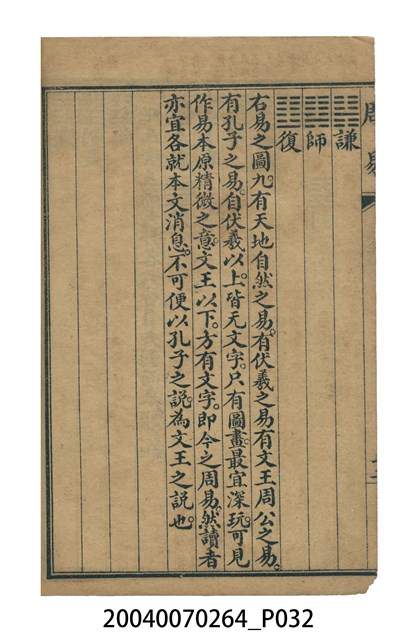 周易
䷎謙
䷆師
䷗復
右易之圖九有天地自然之易。有伏羲之易有文王周公之易。
有孔子之易。自伏羲以上。皆无文字。只有圖畫。最宜深玩。可見
作易本原精微之意。文王以下。方有文字。即今之周易。然讀者
亦宜各就本文消息。不可便以孔子之說。為文王之說也。
20040070264_P032